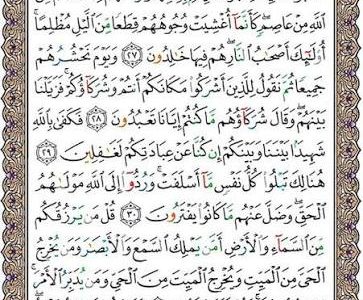 ٱللَّهِ مِنْ عَاصِمٍۖ كَأَنَّمَآ أُغْشِيَتْ وُجُوهُهُمْ قِطَعًا مِّنَ ٱلَّيْلِ مُظْلِمًاۚ
أُو۟لَٰٓئِكَ أَصْحَٰبُ ٱلنَّارِۖ هُمْ فِيهَا خَٰلِدُونَ ٢٧ وَيَوْمَ نَحْشُرُهُمْ
جَمِيعًا ثُمَّ نَقُولُ لِلَّذِينَ أَشْرَكُوا۟ مَكَانَكُمْ أَنتُمْ وَشُرَكَآؤُكُمْۚ فَزَيَّلْنَا
بَيْنَهُمْۖ وَقَالَ شُرَكَآؤُهُم مَّا كُنتُمْ إِيَّانَا تَعْبُدُونَ ٢٨ فَكَفَىٰ بِٱللَّهِ
شَهِيدًۢا بَيْنَنَا وَبَيْنَكُمْ إِن كُنَّا عَنْ عِبَادَتِكُمْ لَغَٰفِلِينَ ٢٩
هُنَالِكَ تَبْلُوا۟ كُلُّ نَفْسٍ مَّآ أَسْلَفَتْۚ وَرُدُّوٓا۟ إِلَى ٱللَّهِ مَوْلَىٰهُمُ
ٱلْحَقِّۖ وَضَلَّ عَنْهُم مَّا كَانُوا۟ يَفْتَرُونَ ٣٠ قُلْ مَن يَرْزُقُكُم
مِّنَ ٱلسَّمَآءِ وَٱلْأَرْضِ أَمَّن يَمْلِكُ ٱلسَّمْعَ وَٱلْأَبْصَٰرَ وَمَن يُخْرِجُ
ٱلْحَىَّ مِنَ ٱلْمَيِّتِ وَيُخْرِجُ ٱلْمَيِّتَ مِنَ ٱلْحَىِّ وَمَن يُدَبِّرُ ٱلْأَمْرَۚ